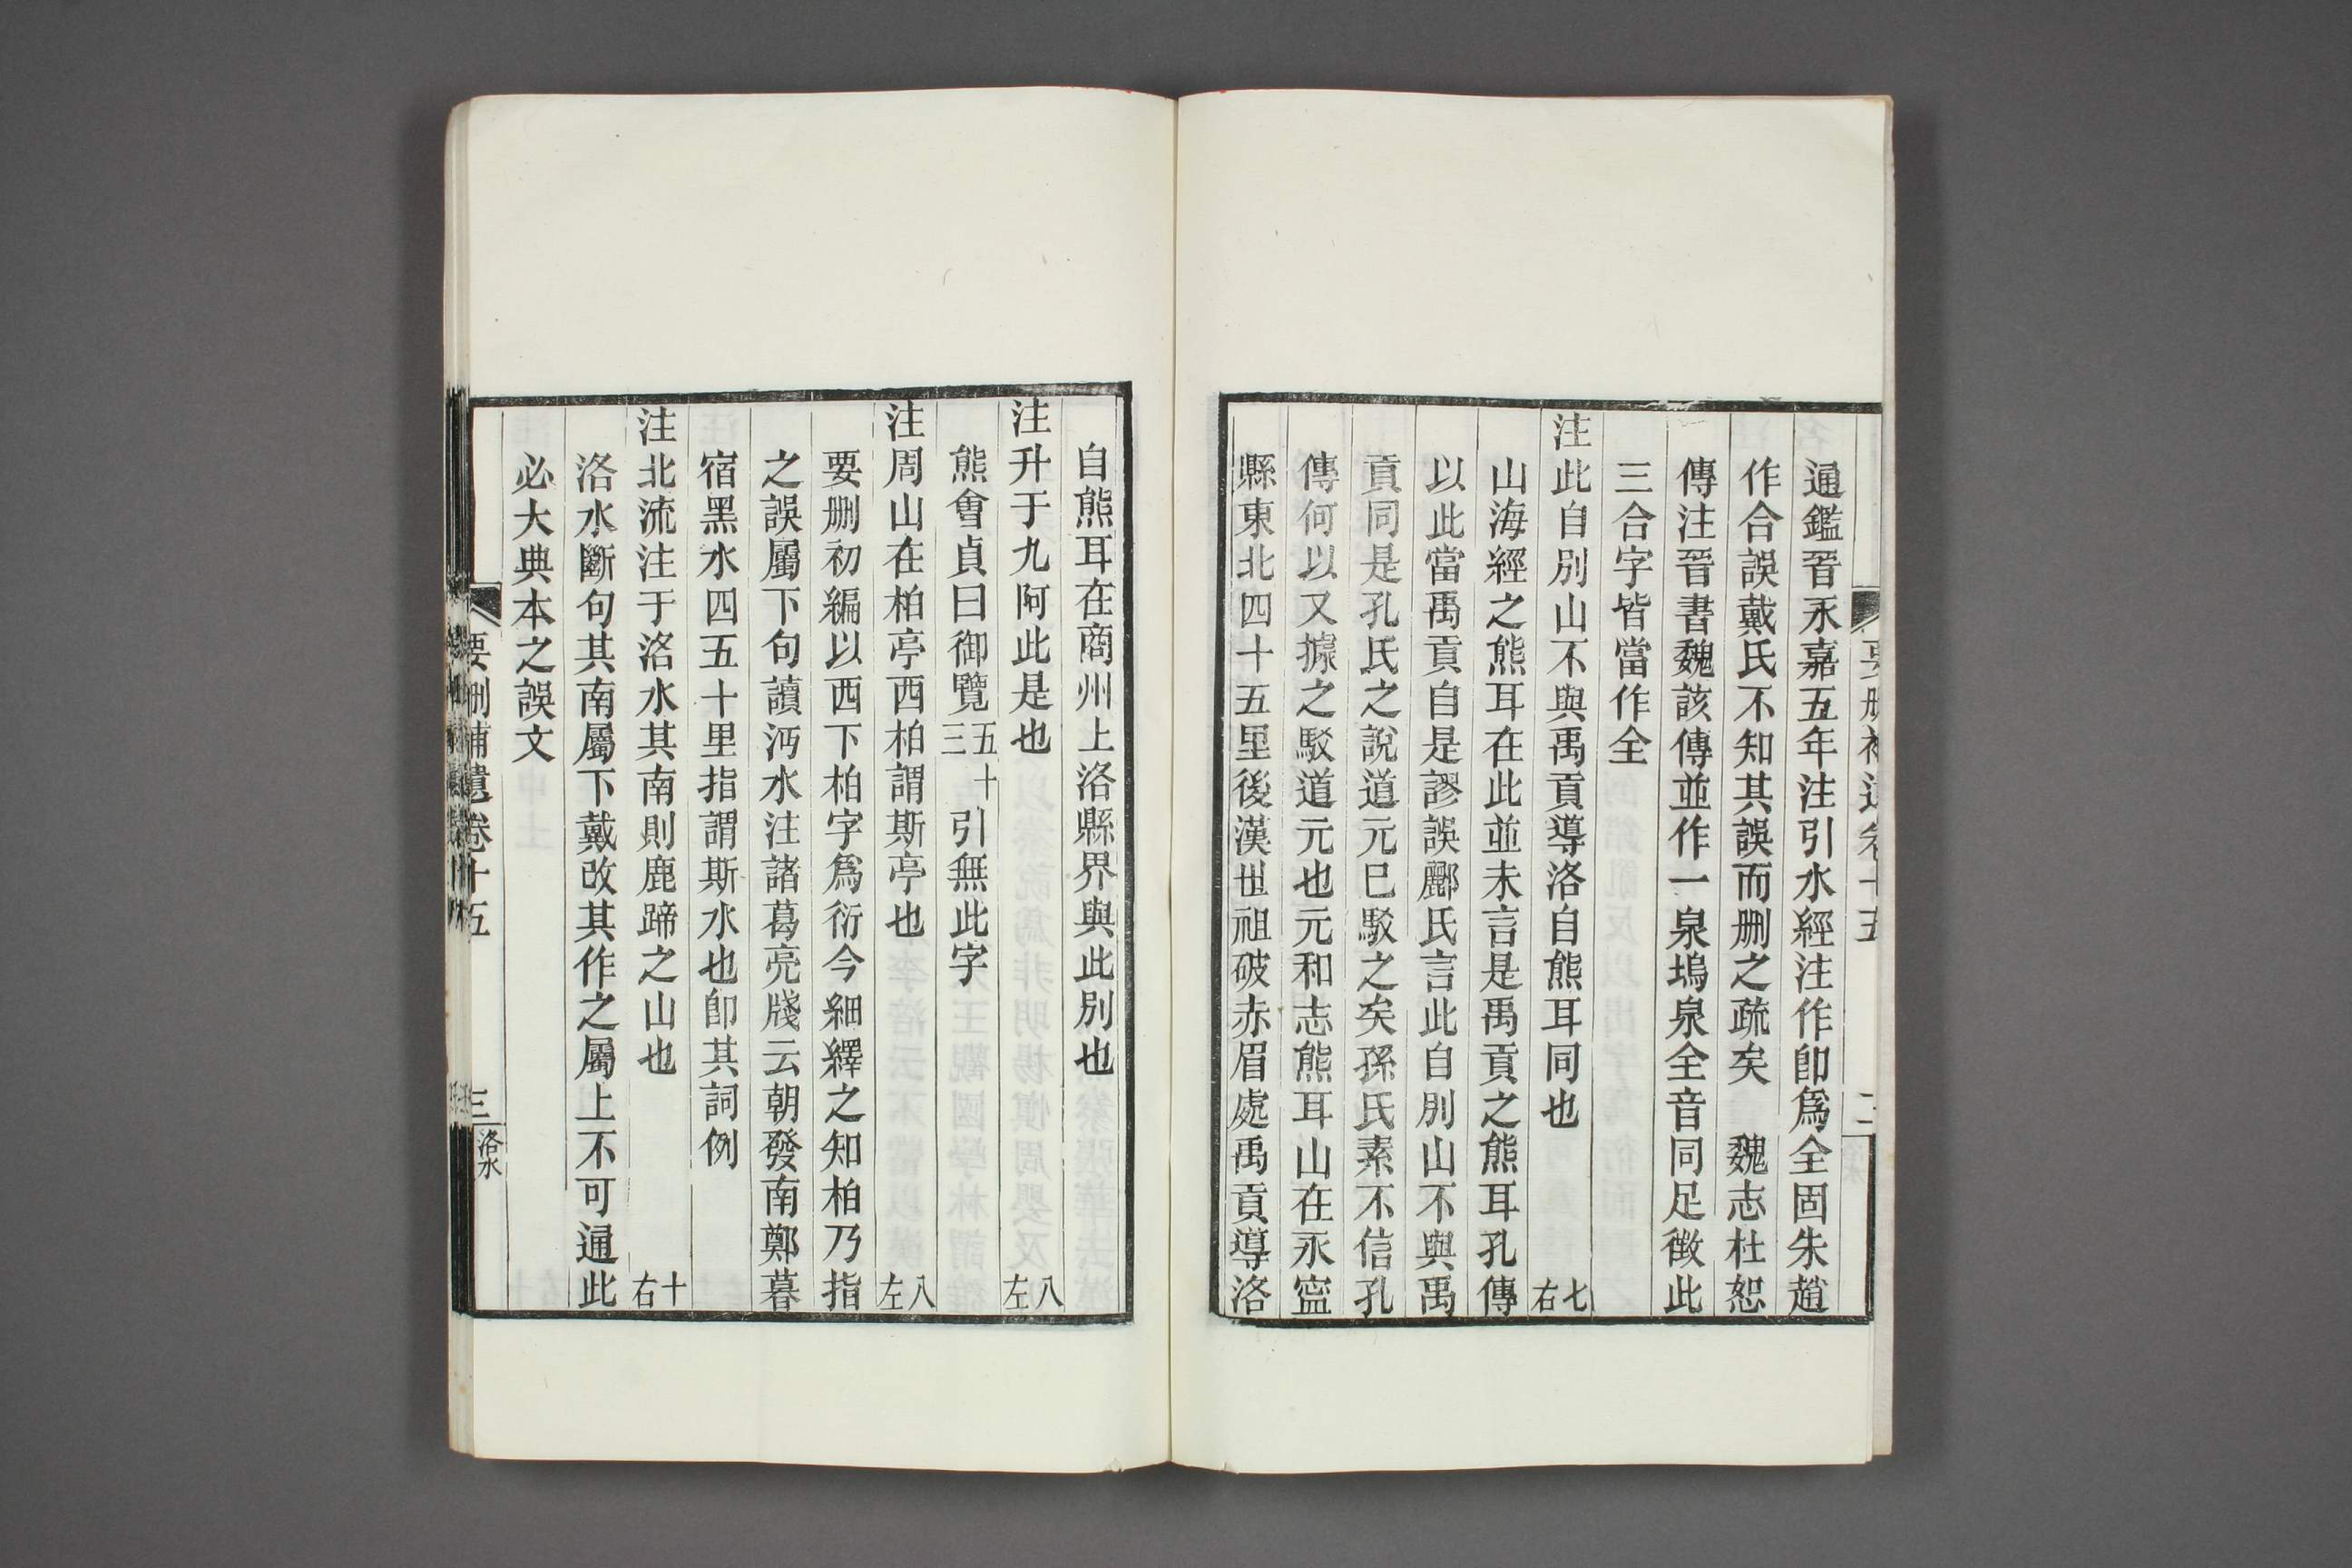 通鑑晉永嘉五年注引水經注作卽爲全固朱趙
作合誤戴氏不知其誤而刪之疏矣　魏志杜恕
傳注晉書魏該傳並作一泉塢泉全音同足徵此
三合字皆當作全
注此自別山不與禹貢導洛自熊耳同也　七右
山海經之熊耳在此並未言是禹貢之熊耳孔傳
以此當禹貢自是謬誤酈氏言此自別山不與禹
貢同是孔氏之說道元已駁之矣孫氏素不信孔
傳何以又據之駁道元也元和志熊耳山在永寍
縣東北四十五里後漢世祖破赤眉處禹貢導洛
自熊耳在商州上洛縣界與此別也
注升于九阿此是也　八左
熊會貞曰御覽五十三引無此字
注周山在柏亭西柏謂斯亭也　八左
要刪初編以西下柏字爲衍今細繹之知柏乃指
之誤屬下句讀沔水注諸葛亮牋云朝發南鄭暮
宿黑水四五十里指謂斯水也卽其詞例
注北流注于洛水其南則鹿蹄之山也　十右
洛水斷句其南屬下戴改其作之屬上不可通此
必大典本之誤文
要刪補遺卷十五　三　洛水